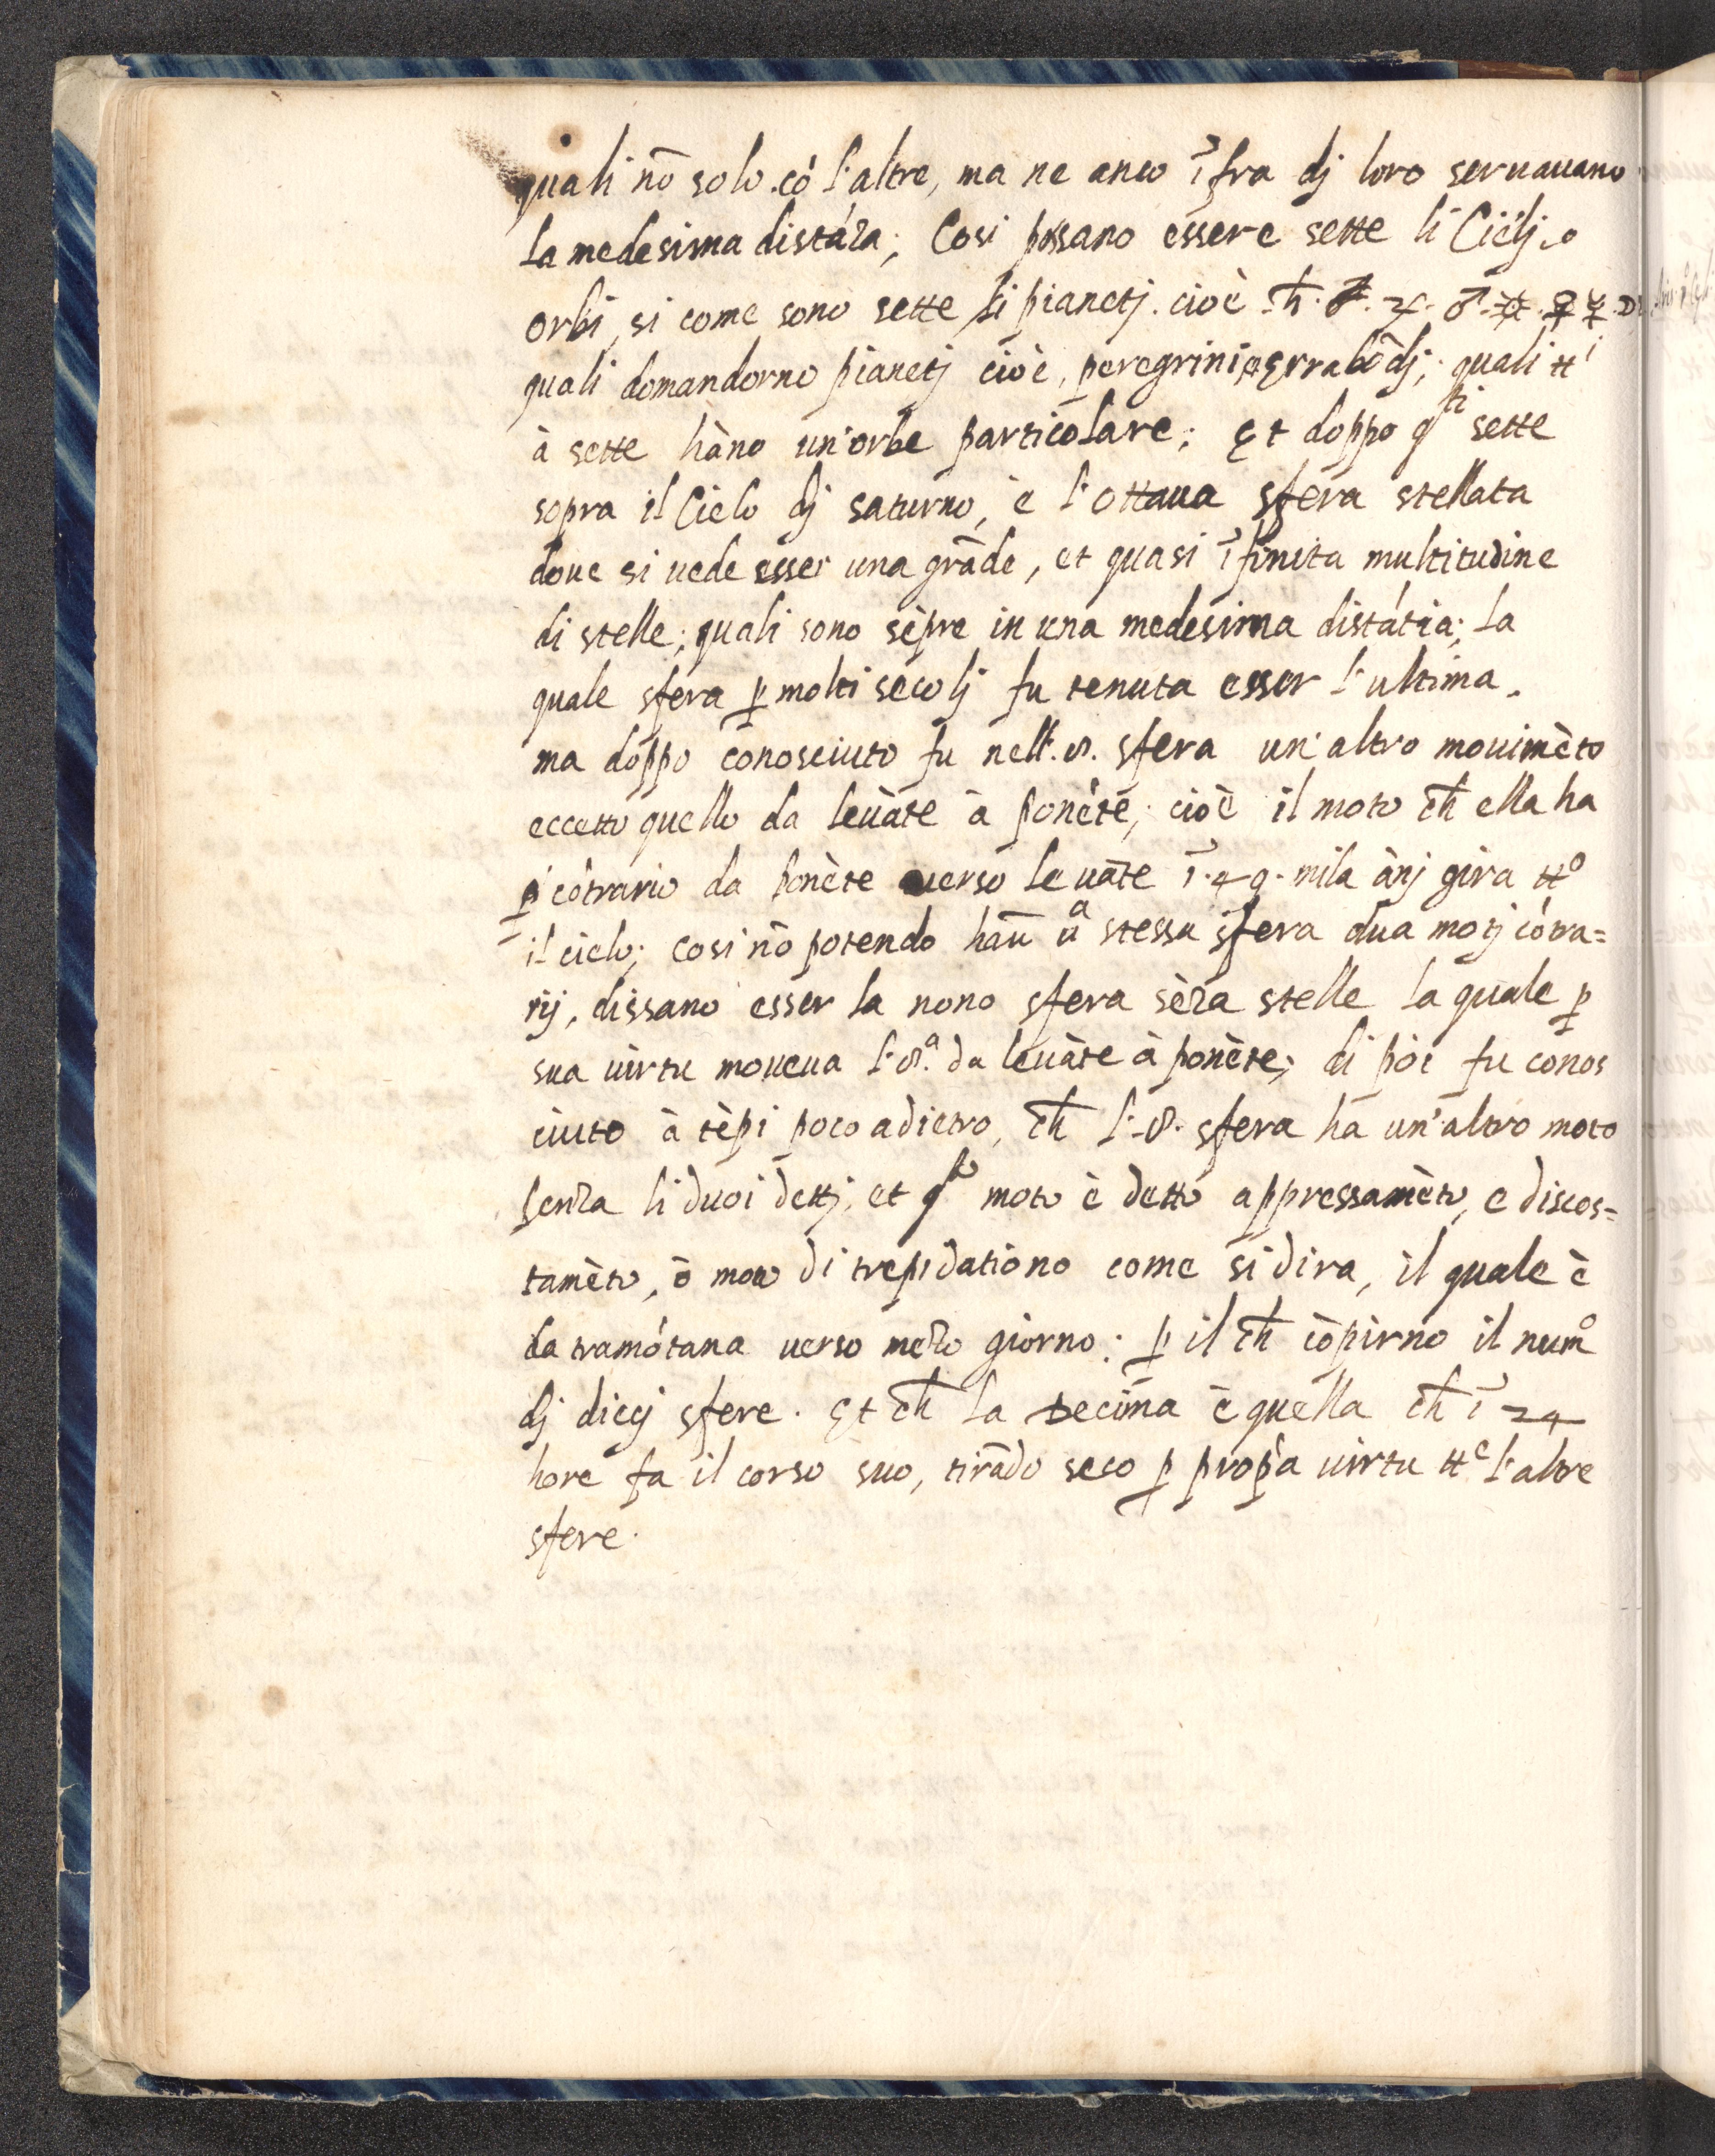 quali nō solo có l'altre, ma ne anco ī fra dj loro seruauano
la medesima distáza; Cosi possano essere sette li Cielj o
orbi, si come sono sette li pianetj. cioè ♄. ♃. ♂. ☼. ♀ ☿. ☽
quali domandorno pianetj cioè, peregrini, errabōdj; quali ttⁱ
à sette hàno un'orbe particolare; Et doppo qᵗⁱ sette
sopra il Cielo dj saturno, è l'ottaua sfera stellata
doue si uede esser una grāde, et quasi ī finita multitudine
di stelle; quali sono sèpre in una medesima distátia; la
quale sfera ꝑ molti secolj fu tenuta esser l'ultima.
ma doppo conosciuto fu nell'.8. sfera un'altro mouimèto
eccetto quello da leuàte à ponéte; cioè il moto ch̄ ella ha
ꝑ cótrario da ponète uerso leuāte ī.49. mila ànj gira ttº
il cielo; cosi nō potendo hau̅ ūᵃ stessa sfera dua motj cótra=
rij, dissano esser la nono sfera sèza stelle la quale ꝑ
sua uirtu moueua l'8ᵃ. da leuàte à ponète; di poi fu conos
ciuto à tèpi poco adietro, ch̄ l'.8. sfera ha un'altro moto
senza li duoi dettj; et qᵗᵒ moto è detto appressamèto, e discos=
tamèto, ō moto di trepidationo come si dira, il quale è
da tramótana uerso mezo giorno: ꝑ il ch̄ còpirno il numº
dj diecj sfere. Et ch̄ la Decima è quella ch̄ ī 24
hore fa il corso suo, tirādo seco ꝑ propꝑa uirtu ttᵉ l'altre
sfere.